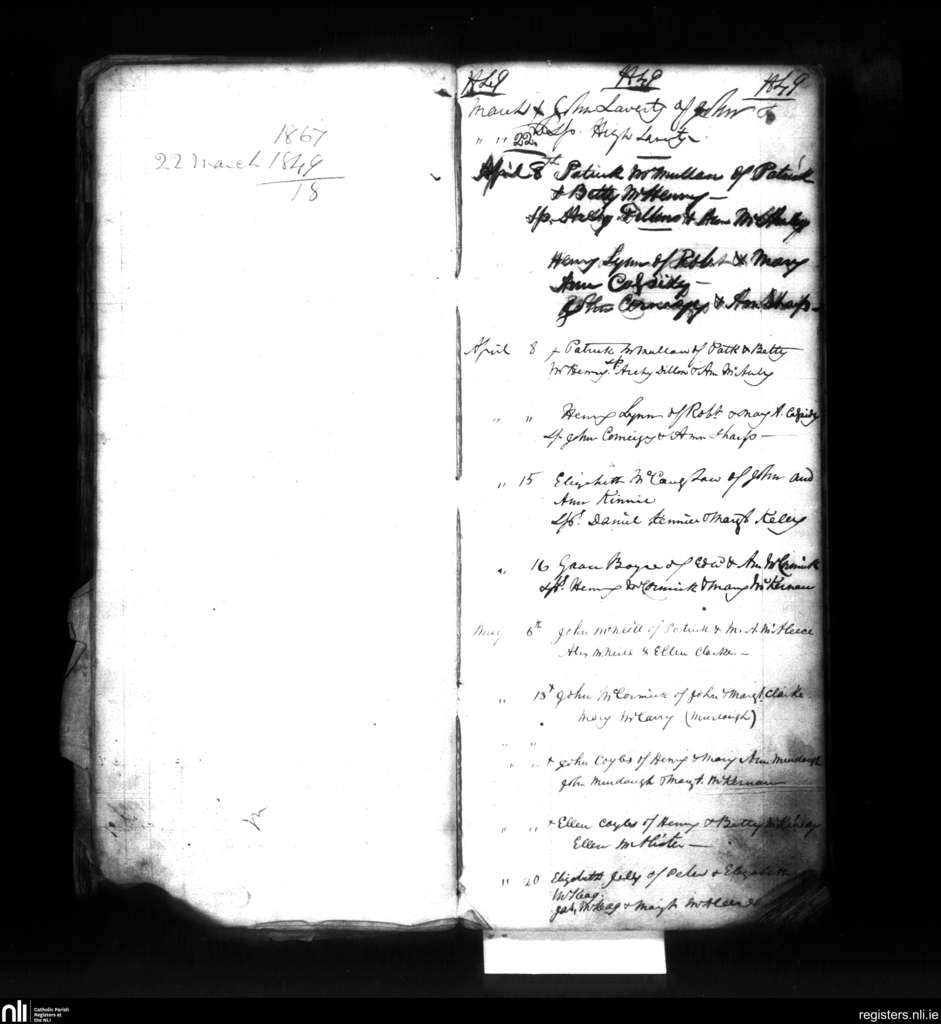 1867
22 March 1849
18
1849 1849 1849
March + John Laverty of John &
" " 22nd Sp. Hugh Laverty
April 8th Patrick McMullan of Patrick
& Betty McHenry —
Sp. Archy Dillon & Ann McAuley
Henry Lynn of Robt & Mary
Ann Cassidy —
John & Ann Sharp —
April 8 + Patrick McMullan of Patk & Betty
McHenry Sp Archy Dillon & Ann McAuley
" " Henry Lynn of Robt & Mary A. Cassidy
Sp John & Ann Sharp —
" 15 Elizabeth of John and
Ann Kinnie
Sps. Daniel Kennie & Margt Kelly
" 16 Boyce of Edwd & Ann McCormick
Sps. Henry McCormick & Mary McKernan
May 6th John McNeill of Patrick & M. A. McAleece
Alex McNeill & Ellen Clarke —
" 13 + John McCormick of John & Margt. Clarke
Mary McCarry (Murlough)
" "
" " + John Coyles of Henry & Mary Ann Murdaugh
John Murdaugh & Margt. McKernan
" " + Ellen Coyles of Henry & Betty McKinley
Ellen McAlister —
" 20 Elizabeth of Peter & Elizabeth
McKeag
McKeag & Margt
nli
Catholic Parish
Registers at
the NLI
registers.nli.ie